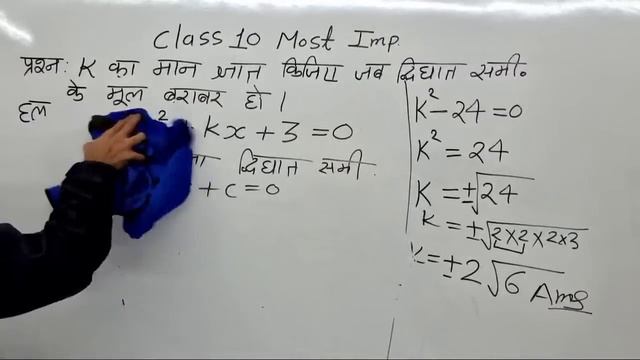 Class 10 Most Imp.
प्रश्न: K का मान ज्ञात किजिए जब द्विघात समी०
के मूल बराबर हो ।
हल
² - Kx + 3 = 0
द्विघात समी.
+ c = 0
K² - 24 = 0
K² = 24
K = ±√24
K = ±√2×2×2×3
K = ±2√6 Ans